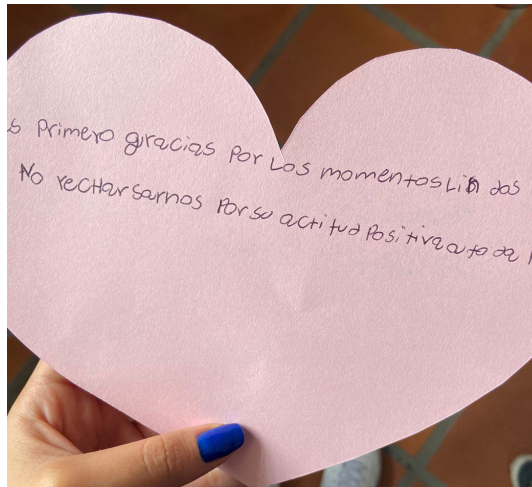 s Primero gracias Por Los momentos Lindos
No recHarsarnos Por su actitud Positiva a toda